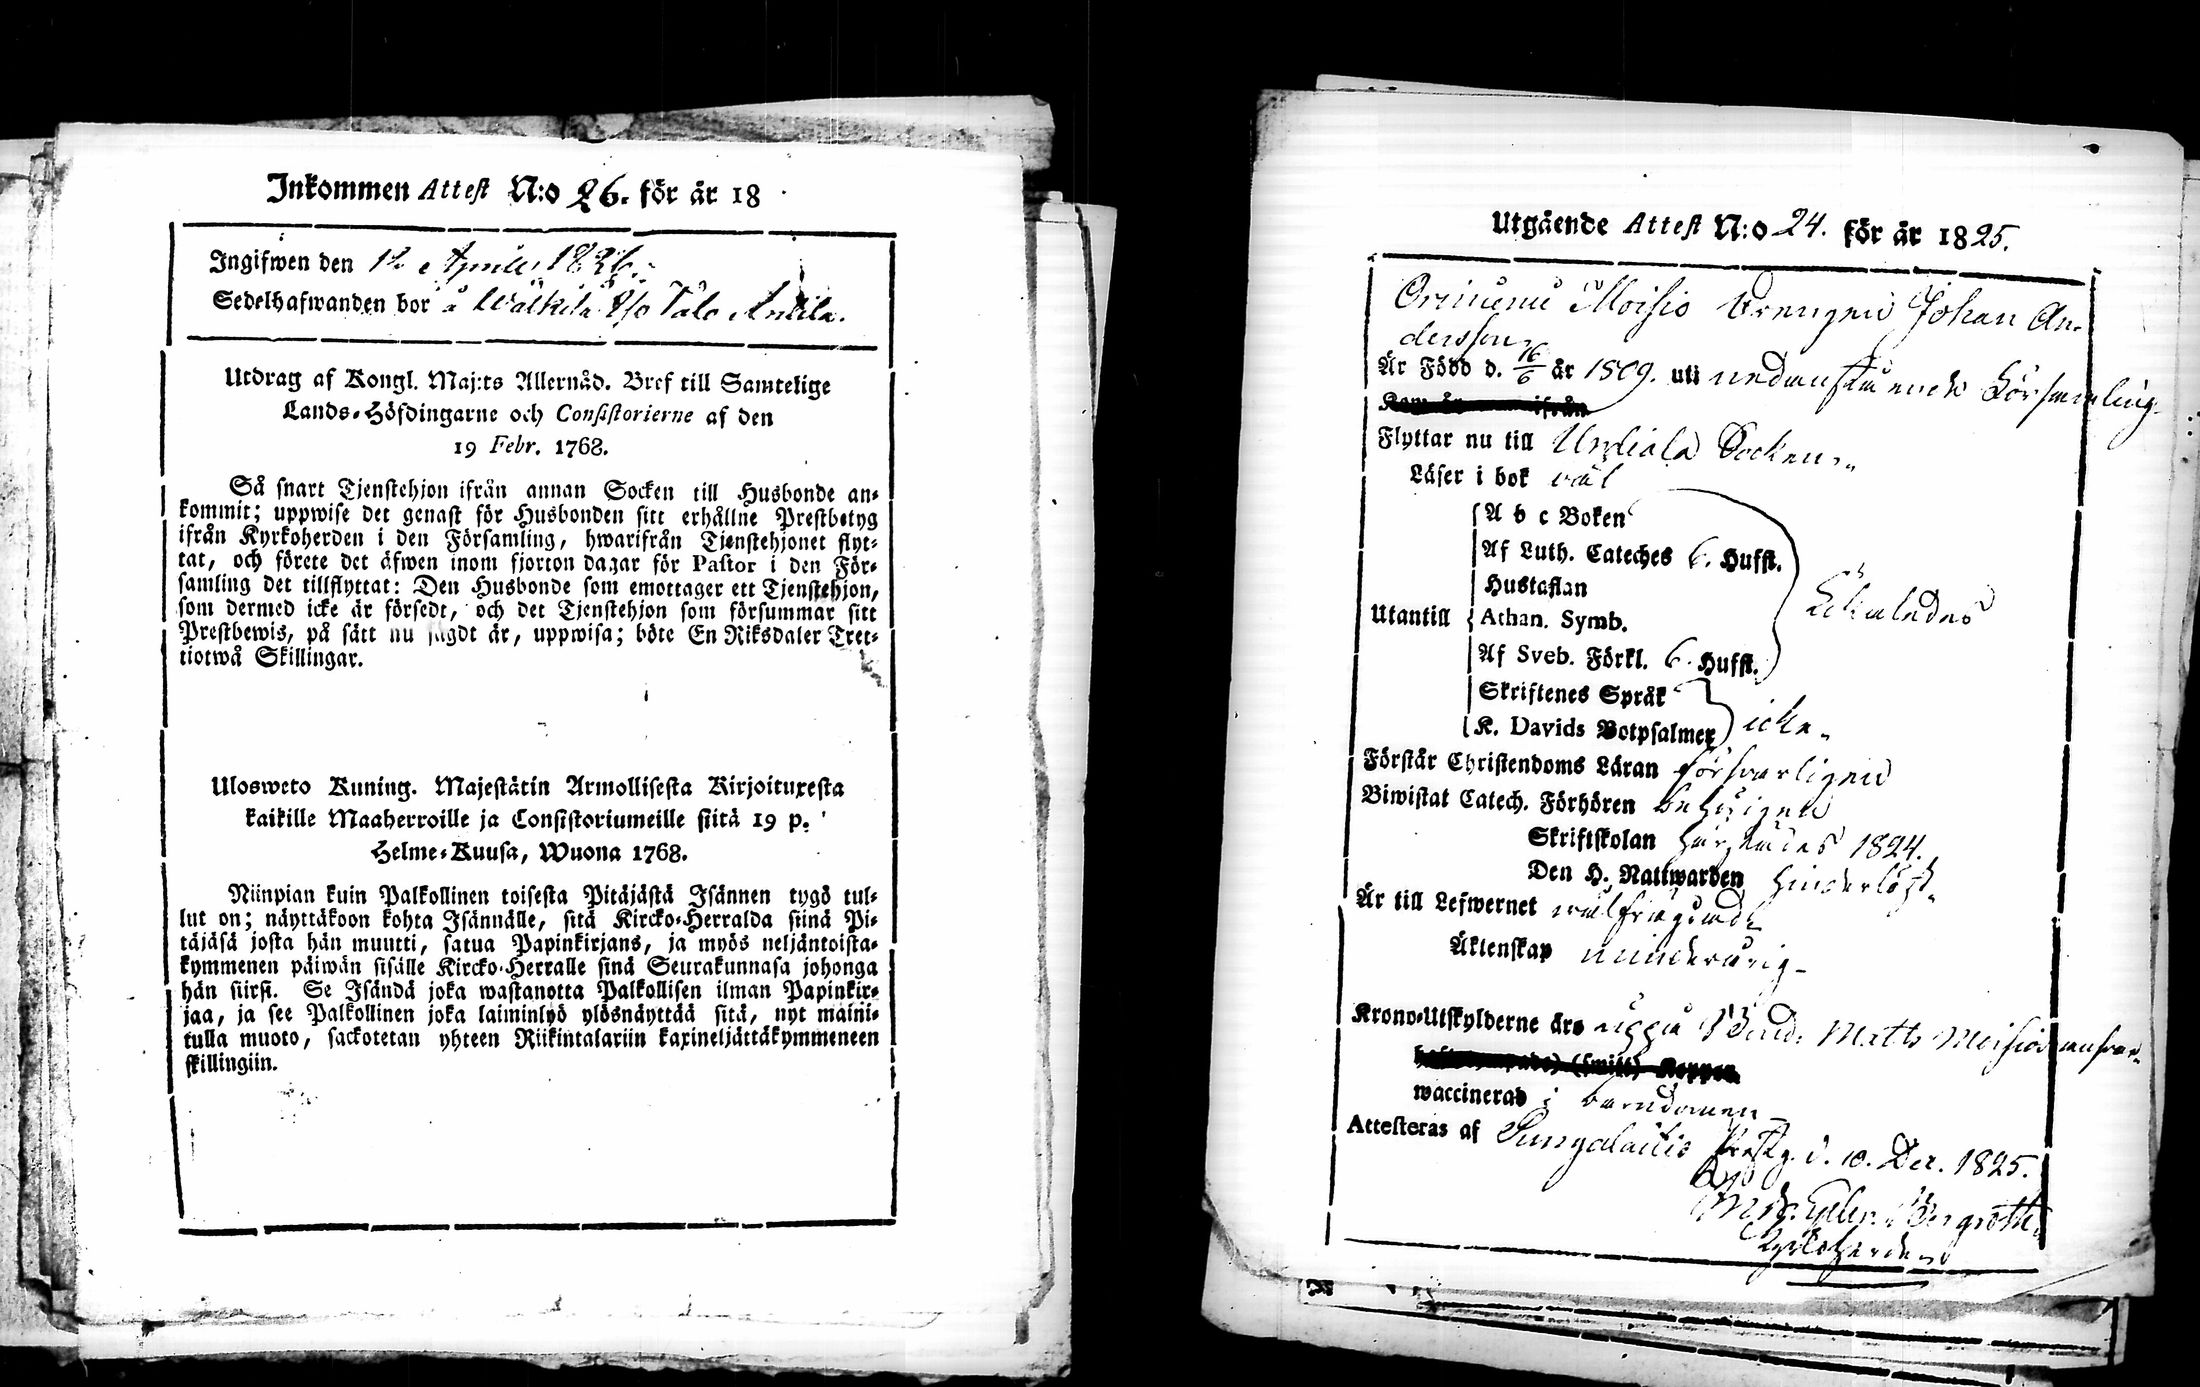 Inkommen Attest N:o 26. för år 18
Ingifwen den 12 Aprill 1826.
Sedelhafwanden bor å Wälkilä Antila.
Utdrag af Kongl. Maj:ts Allernåd. Bref till Samtelige
Lands-Höfdingarne och Consistorierne af den
19 Febr. 1768.
Så snart Tjenstehjon ifrån annan Socken till Husbonde an-
kommit; uppwise det genast för Husbonden sitt erhållne Prestbetyg
ifrån Kyrkoherden i den Församling, hwarifrån Tjenstehjonet flyt-
tat, och förete det äfwen inom fjorton dagar för Pastor i den För-
samling det tillflyttat: Den Husbonde som emottager ett Tjenstehjon,
som dermed icke är försedt, och det Tjenstehjon som försummar sitt
Prestbewis, på sätt nu sagdt är, uppwisa; böte En Riksdaler Tret-
tiotwå Skillingar.
Ulosweto Kuning. Majestätin Armollisesta Kirjoituxesta
kaikille Maaherroille ja Consistoriumeille siitä 19 p.
Helme-Kuusa, Wuona 1768.
Niinpian kuin Palkollinen toisesta Pitäjästä Isännen tygö tul-
lut on; näyttäkoon kohta Isännälle, sitä Kircko-Herralda siinä Pi-
täjäsä josta hän muutti, satua Papinkirjans, ja myös neljäntoista-
kymmenen päiwän sisälle Kircko-Herralle sinä Seurakunnasa johonga
hän siirsi. Se Isändä joka wastanotta Palkollisen ilman Papinkir-
jaa, ja see Palkollinen joka laiminlyö ylösnäyttää sitä, nyt maini-
tulla muoto, sackotetan yhteen Riikintalariin kaxineljättäkymmeneen
skillingiin.
Utgående Attest N:o 24. för år 1825.
Moisio Drengen Johan An-
dersson
Är Född d. 16/6 år 1809. uti nedanstående Församling
Flyttar nu till Urdiala Socken
Läser i bok väl
Utantill
A b c Boken
Af Luth. Cateches 6. Hufst.
Hustaflan
Athan. Symb.
Af Sveb. Förkl. 6. Hufst.
likaledes
Skriftenes Språk
K. Davids Botpsalmer
icke
Förstår Christendoms Läran försvarligen
Biwistat Catech. Förhören behörigen
Skriftskolan härstädes 1824.
Den H. Nattwarden hinderlöst
Är till Lefwernet välfrägdad
Äktenskap minderårig
Krono-Utskylderne äro uppå Bond. Matts Moisios ansvar
waccinerad i barndomen
Attesteras af Pungalaitio Prestg. d. 10. Dec. 1825.
Bergroth
Kyrkoherde